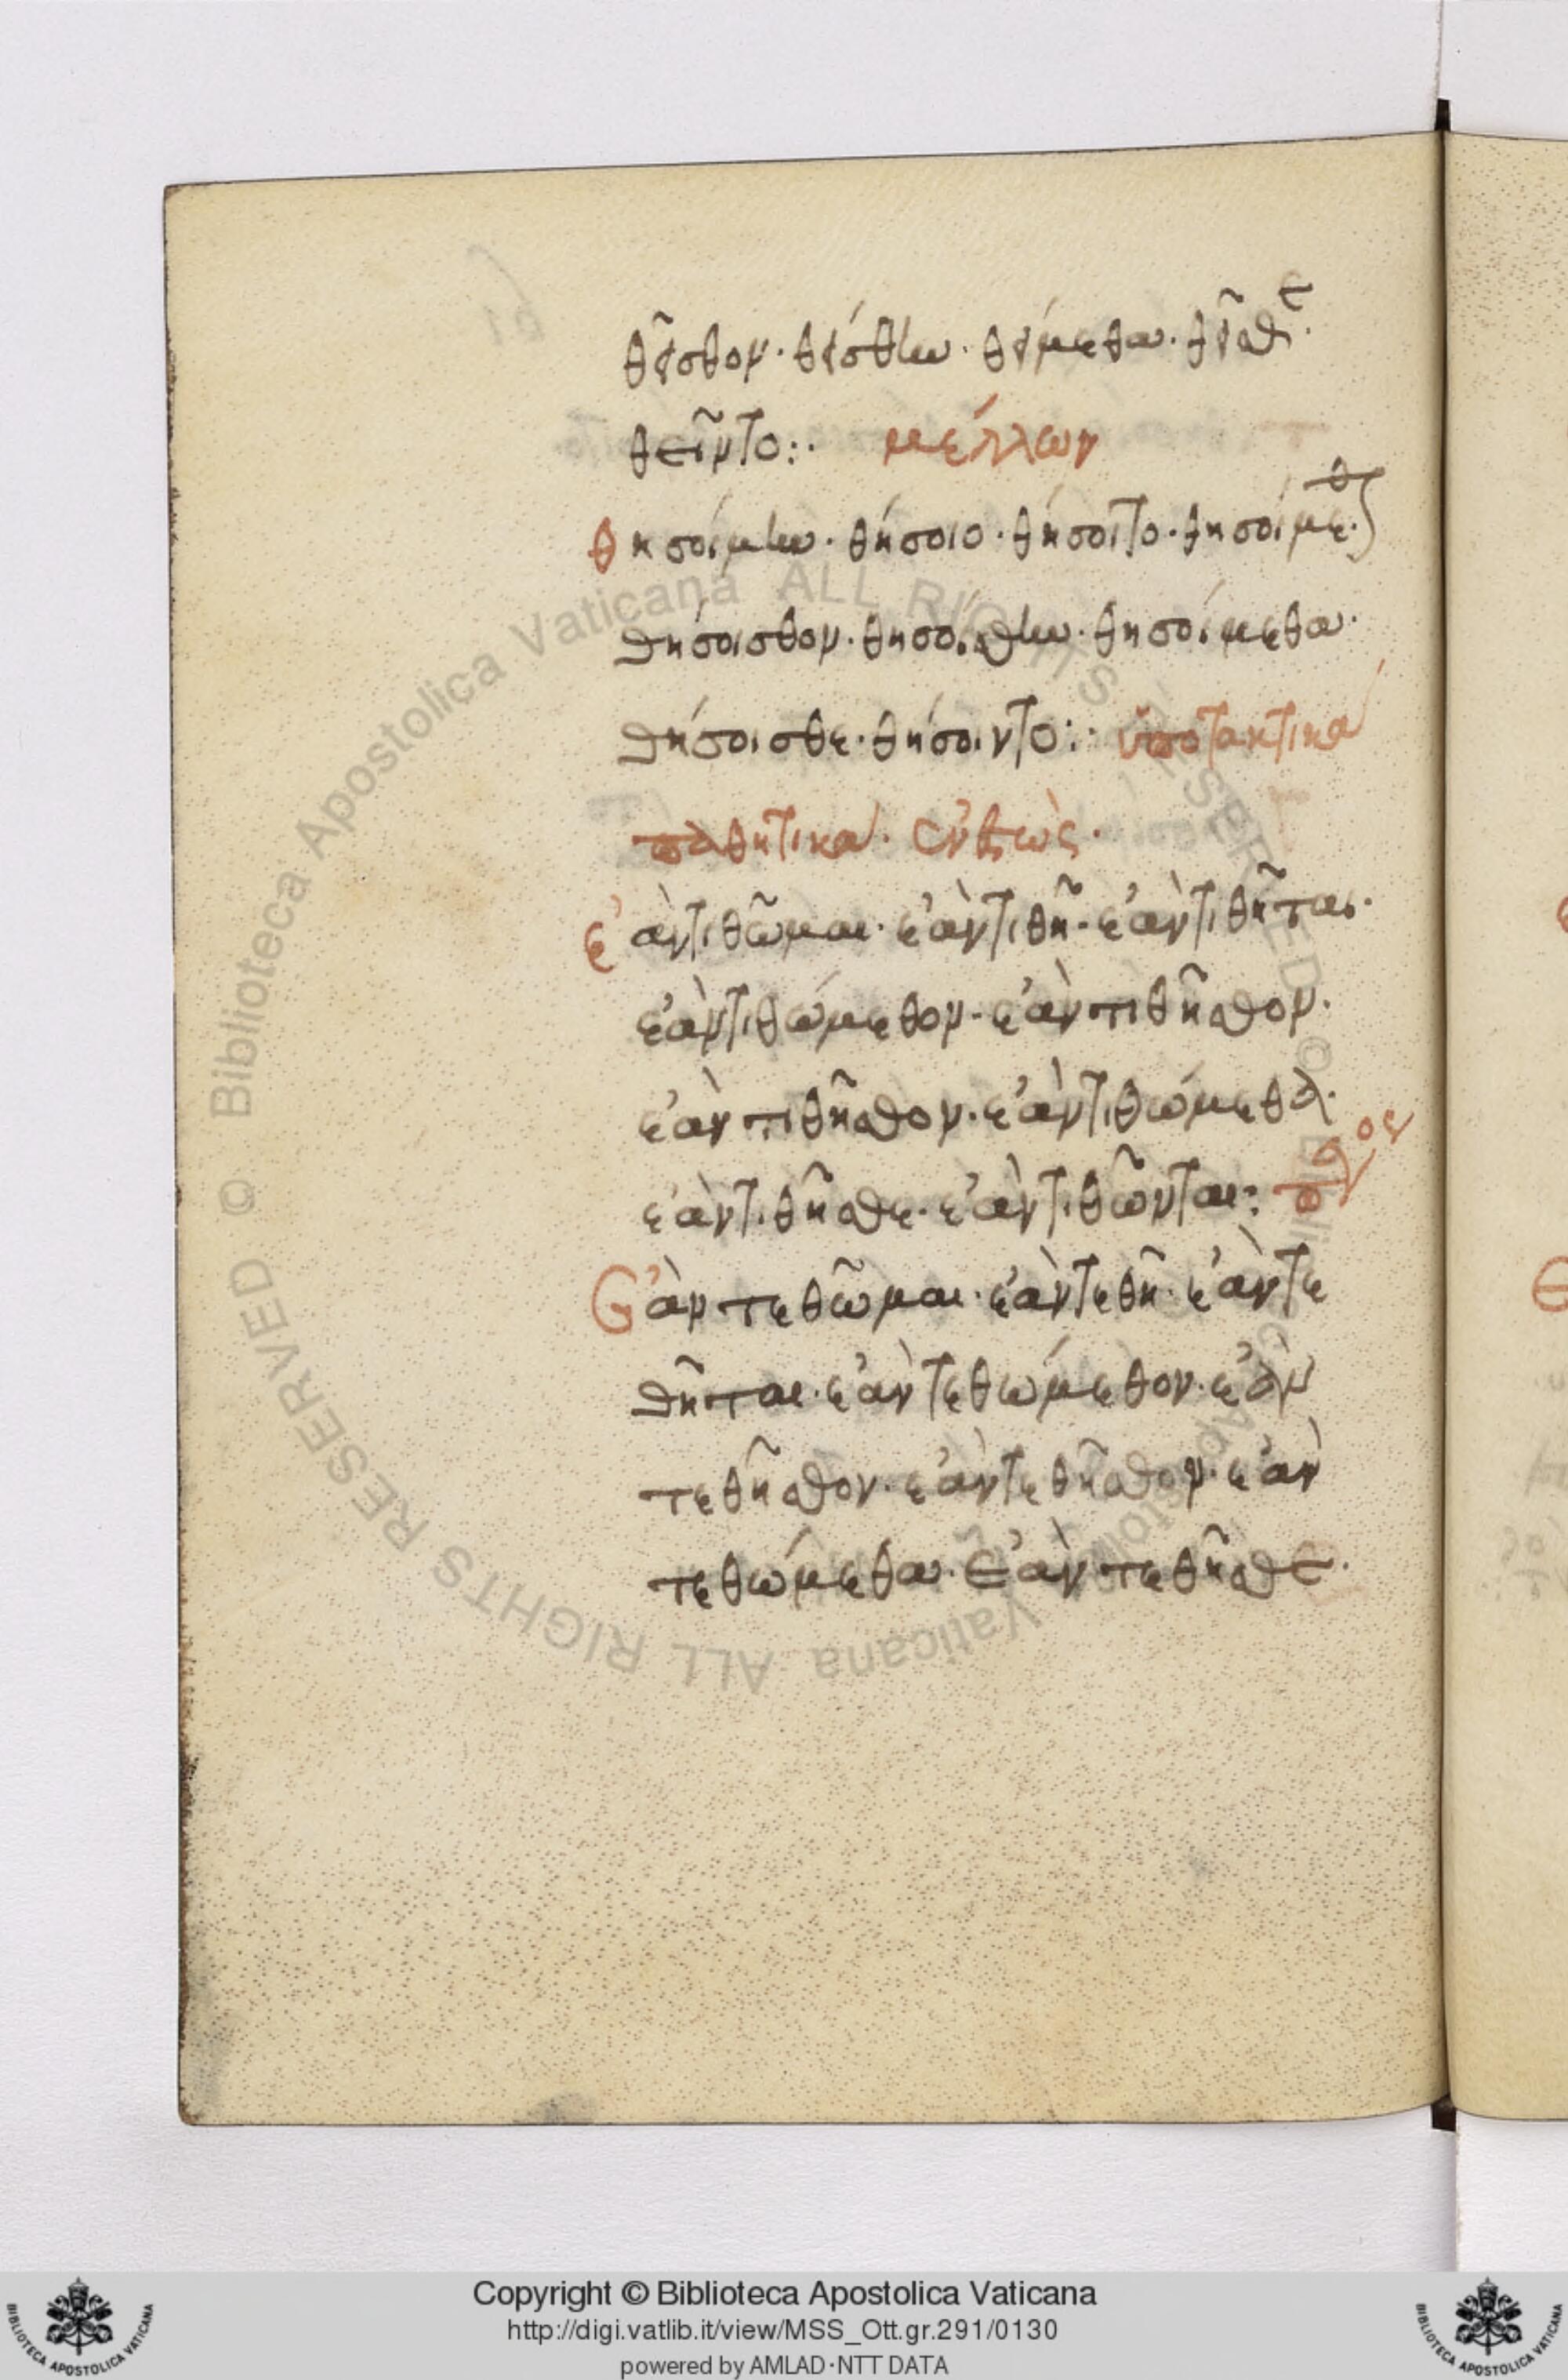 θεῖσθον· θείσθην· θείμεθα· θεῖσθε·
θεῖντο:· μέλλων
θησοίμην· θήσοιο· θήσοιτο· θησοίμεθ(ον)·
θήσοισθον· θησοίσθην· θησοίμεθα·
θήσοισθε· θήσοιντο:· ὑποτακτικὰ
παθητικά· ἐνεστώς·
ἐὰν τιθῶμαι· ἐὰν τιθῆ· ἐὰν τιθῆται·
ἐὰν τιθώμεθον· ἐὰν τιθῆσθον·
ἐὰν τιθῆσθον· ἐὰν τιθώμεθα·
ἐὰν τιθῆσθε· ἐὰν τιθῶνται:
Ἐὰν τεθῶμαι· ἐὰν τεθῆ· ἐὰν τε
θῆται· ἐὰν τεθώμεθον· ἐὰν
τεθῆσθον· ἐὰν τεθῆσθον· ἐὰν
τεθώμεθα· ἐὰν τεθῆσθε·
© Biblioteca Apostolica Vaticana ALL RIGHTS RESERVED
Copyright © Biblioteca Apostolica Vaticana
http://digi.vatlib.it/view/MSS_Ott.gr.291/0130
powered by AMLAD·NTT DATA
BIBLIOTECA APOSTOLICA VATICANA
BIBLIOTECA APOSTOLICA VATICANA